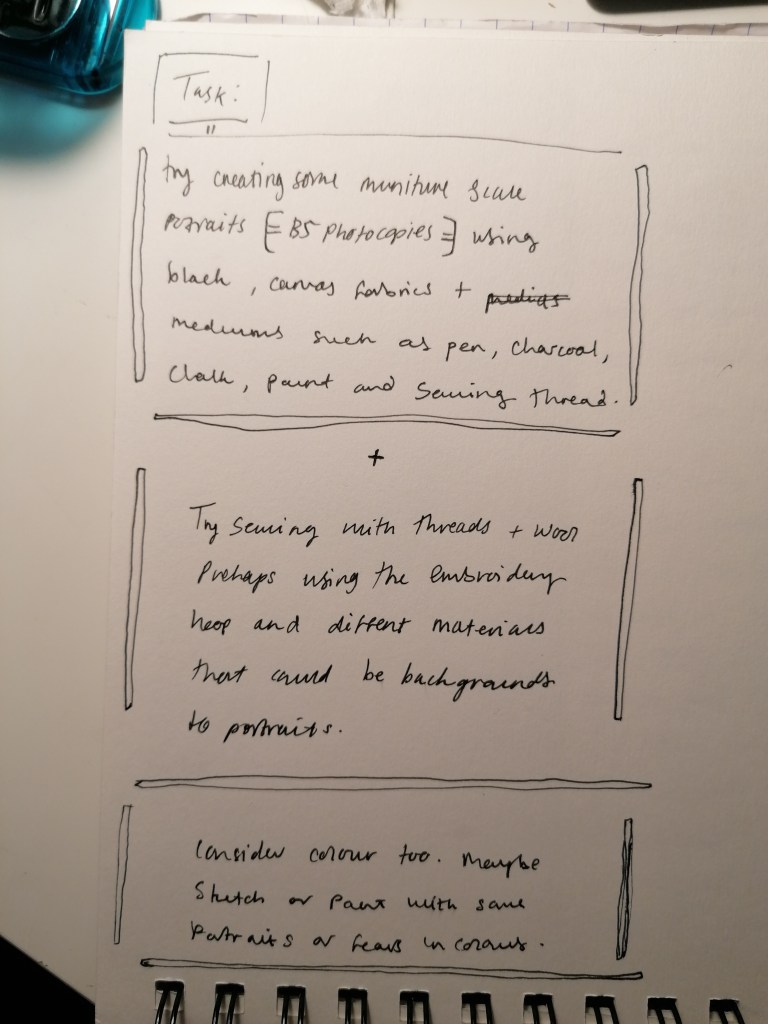 Task:
"
Try creating some muniture scale
portraits [= B5 photocopies =] using
black, canvas fabrics +
mediums such as pen, charcoal,
Chalk, paint and sewing thread.
+
Try sewing with threads + wool
Prehaps using the embroidery
hoop and diffent materials
that could be backgrounds
to portraits.
Consider colour too. Maybe
Sketch or Paint with some
Portraits or in colours.